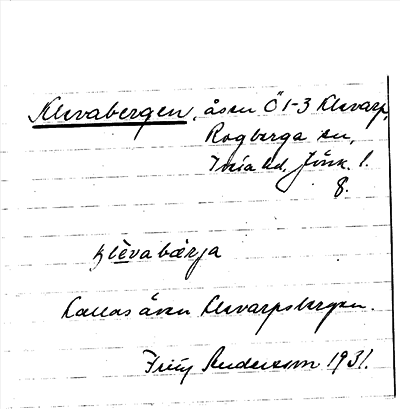 Klevabergen, åsen Ö 1-3 Klevarp,
Rogberga sn,
Tveta hd, Jönk. l.
8.
klèvabærja
Kallas även Klevarpsbergen.
Frity Andersson 1931.